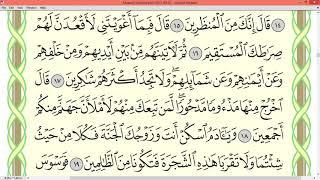 ١٤ قَالَ إِنَّكَ مِنَ ٱلْمُنظَرِينَ ١٥ قَالَ فَبِمَآ أَغْوَيْتَنِى لَأَقْعُدَنَّ لَهُمْ
صِرَٰطَكَ ٱلْمُسْتَقِيمَ ١٦ ثُمَّ لَءَاتِيَنَّهُم مِّنۢ بَيْنِ أَيْدِيهِمْ وَمِنْ خَلْفِهِمْ
وَعَنْ أَيْمَٰنِهِمْ وَعَن شَمَآئِلِهِمْ وَلَا تَجِدُ أَكْثَرَهُمْ شَٰكِرِينَ ١٧ قَالَ
ٱخْرُجْ مِنْهَا مَذْءُومًا مَّدْحُورًا لَّمَن تَبِعَكَ مِنْهُمْ لَأَمْلَأَنَّ جَهَنَّمَ مِنكُمْ
أَجْمَعِينَ ١٨ وَيَٰٓـَٔادَمُ ٱسْكُنْ أَنتَ وَزَوْجُكَ ٱلْجَنَّةَ فَكُلَا مِنْ حَيْثُ
شِئْتُمَا وَلَا تَقْرَبَا هَٰذِهِ ٱلشَّجَرَةَ فَتَكُونَا مِنَ ٱلظَّٰلِمِينَ ١٩ فَوَسْوَسَ